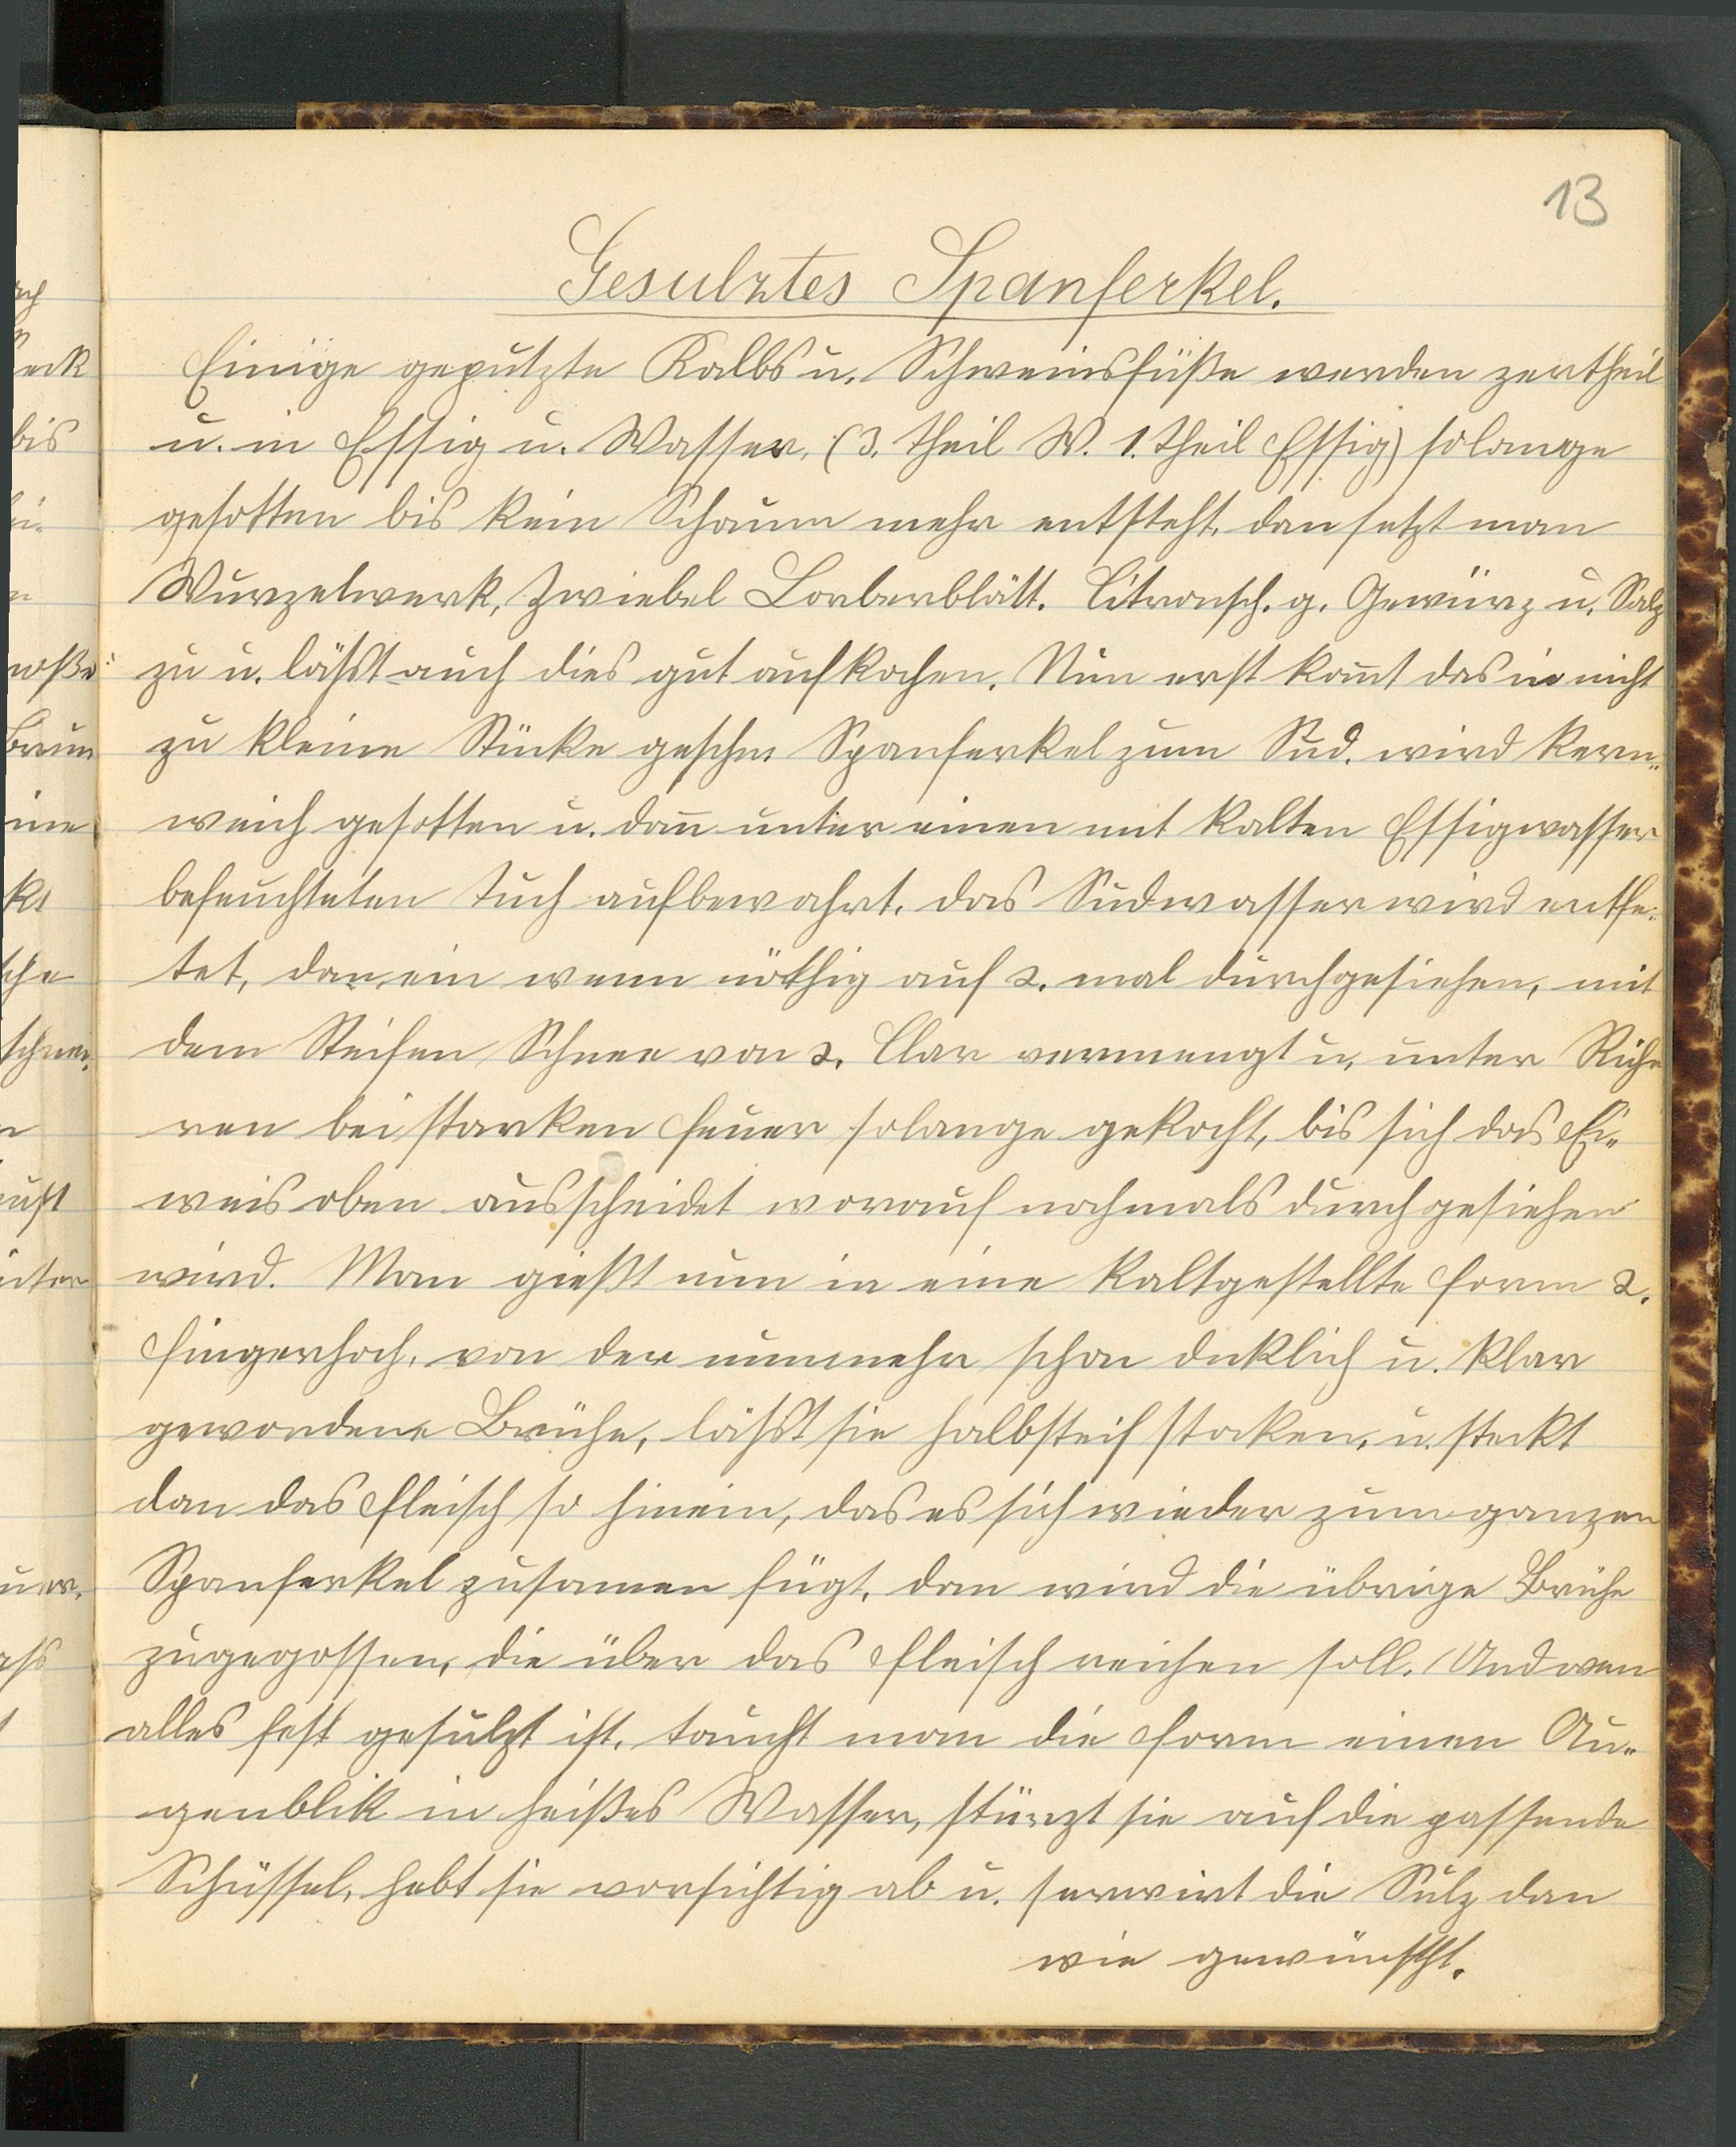 13
Gesulztes Spanferkel.
Einige geputzte Kalbs u. Schweinsfüße werden zertheil
u. in Essig u. Wasser, (3. Theil W. 1. Theil Essig) solange
gesotten bis kein Schaum mehr entsteht, dan setzt man
Wurzelwerk, Zwiebel Lorberblätt. Citronsch. g. Gewürz u. Salz
zu u. läßt auch dies gut aufkochen. Nun erst kom̅t das in nicht
zu kleine Stücke geschn Spanferkel zum Sud. wird kern„
weich gesotten u. dan̅ unter einen mit kalten Essigwasser
befeuchteten Tuch aufbewahrt. das Sudwasser wird entfe„
tet, dan, ein wenn nöthig auf 2. mal durchgesiehen, mit
dem Steifen Schnee von 2. Clar vermengt u. unter Rüh
ren bei starken Feuer solange gekocht, bis sich das Ei„
weis oben ausscheidet worauf nochmals durchgesiehen
wird. Man gießt nun in eine kaltgestellte Form 2.
Fingerhoch, von der nunmehr schon dicklich u. klar
gewordene Brühe, läßt sie halbsteif stocken, u. steckt
dan das Fleisch so hinein, das es sich wieder zum ganzen
Spanferkel zusamen fügt. dan wird die übrige Brühe
zugegossen, die über das Fleisch reichen soll. Und wen
alles fest gesulzt ist, taucht man die Form einen Au„
genblik in heißes Wasser, stürzt sie auf die passende
Schüssel, hebt sie vorsichtig ab u. servirt die Sulz dan
wie gewünscht.